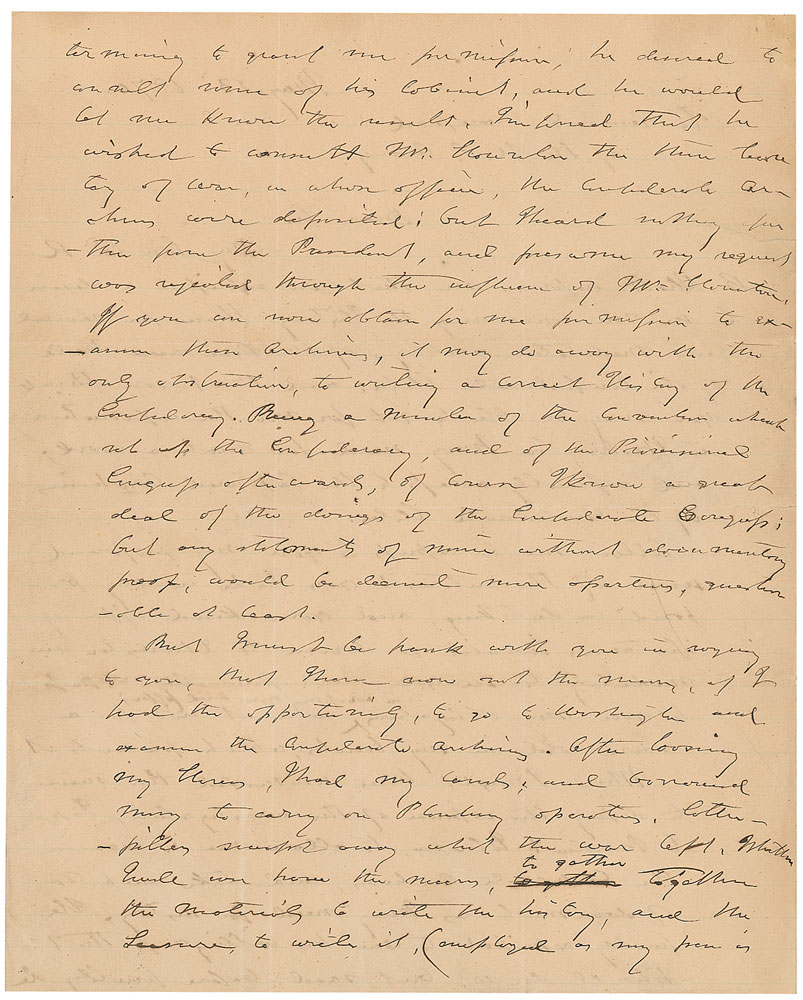 termining to grant me permission; he desired to
consult some of his Cabinet, and he would
let me know the result. I inferred that he
wished to consult Mr. the then Secre
tary of war, in whose office, the Confederate Ar-
chives were deposited; but I heard nothing fur
-ther from the President, and presume my request
was rejected through the influence of Mr.
If you can now obtain for me permission to ex-
-amine these archives, it may do away with the
only obstruction, to writing a correct History of the
Confederacy. Being a member of the Convention which
set up the Confederacy, and of the Provisional
Congress afterwards, of course I know a great
deal of the doings of the Confederate Congress;
but any statements of mine without documentary
proof, would be deemed mere assertions, question
-able at least.
But I must be frank with you in saying
to you, that I have now not the means, if I
had the opportunity, to go to Washington and
examine the Confederate archives. After loosing
my Slaves, I had my lands; and borrowed
money to carry on Planting operations. Catter-
-pillars swept away what the war left. Whether
I will ever have the means, to gather together
the materials to write the history, and the
Leisure, to write it, (employed as my pen is